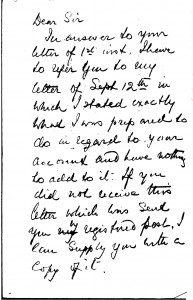 Dear Sir
In answer to your
letter of 1st inst. I have
to refer you to my
letter of Sept 12th in
which I stated exactly
what I was prepared to
do in regard to your
account and have nothing
to add to it. If you
did not receive this
letter which was send
you by registered post, I
can supply you with a
copy of it.